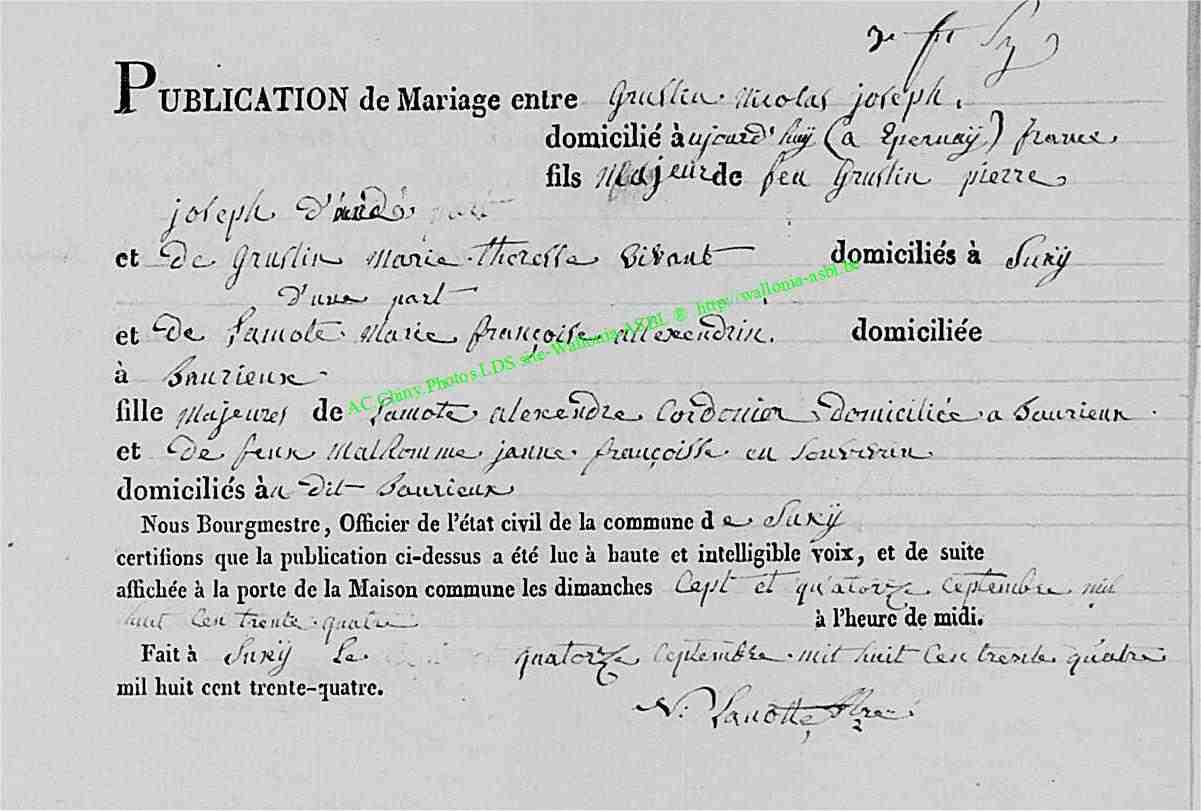 PUBLICATION de Mariage entre Gruslin Nicolas joseph.
domicilié àujourd'huÿ (a Epernaÿ) france
fils Majeur de feu Gruslin pierre
joseph
et de Gruslin Marie theresse vivant domiciliés à Suxÿ
d'une part
et de Lamote Marie françoise allexendrin. domiciliée
à Baurieux.
fille Majeures de Lamote alexendre Cordonier domiciliée a Baurieux.
et de feux Malhomme janne françoisse en Souverin
domiciliés àu dit Baurieux
Nous Bourgmestre, Officier de l'état civil de la commune de Suxÿ
certifions que la publication ci-dessus a été lue à haute et intelligible voix, et de suite
affichée à la porte de la Maison commune les dimanches Cept et quatorze Ceptembre mil
huit Cen trente quatre à l'heure de midi.
Fait à Suxÿ Le quatorze Ceptembre mil huit Cen trente quatre
mil huit cent trente-quatre.
N. Lanotte
AC.Chiny.Photos.LDS site-Wallonia-ASBL ® http://wallonia-asbl.be